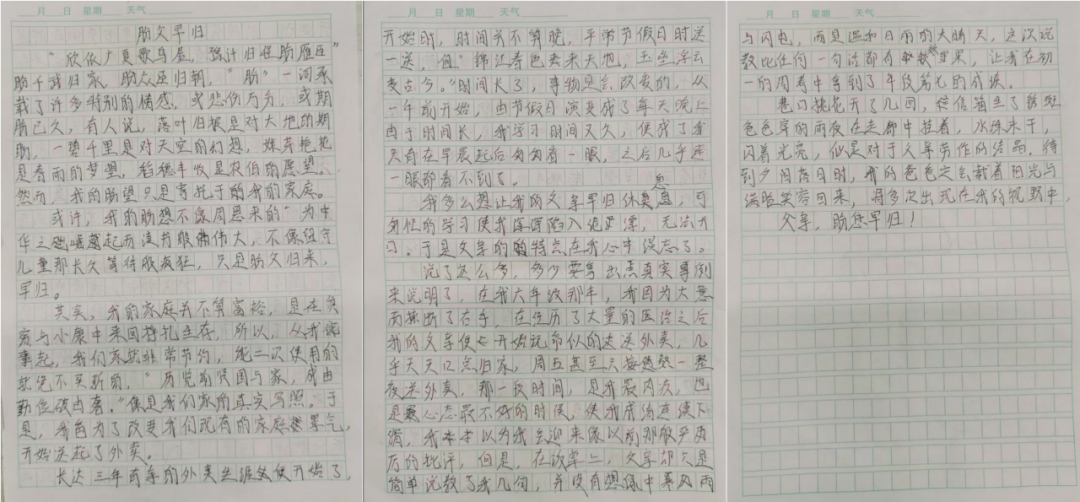 月 日 星期 天气
盼父早归
盼千载归家，盼众臣归朝，"盼"一词承
载了许多特别的情感，或悲伤万分，或期
盼已久，有人说，落叶归根是对大地的期
盼，一碧千里是对天空的幻想，
是春雨的梦想，稻穗丰收是农伯的愿望。
然而，我的盼望只是寄托于的我的家庭。
或许，我的盼想不像周恩来的"为中
华之崛起而读书般伟大，不像留守
儿童那长久等待般疯狂，只是盼父归来，
早归。
其实，我的家庭并不算富裕，是在贫
穷与小康中来回挣扎生存，所以，从我记
事起，我们家就非常节约，能二次使用的
就绝不买新的，"历览前贤国与家，成由
勤俭破由奢。"像是我们家的真实写照，于
是，我爸为了改变我们现有的家庭
开始送起了外卖。
长达三年有余的外卖生涯就使开始了，
月 日 星期 天气
开始时，时间亦不算晚，平常节假日时送
一送，但"锦江春色来天地，玉垒浮云
变古今。"时间长了，事物是会改变的，从
一年前开始，由节假日演变成了每天晚上
由于时间长，我学习时间又久，便成了我
只有在早晨起后匆匆看一眼，之后几乎连
一眼都看不到了。
我多么想让我的父亲早归休息，可
匆忙的学习使我深深陷入 ，无法开
口，于是父亲的 特点在我心中淡忘了。
说了这么多，多少要拿出点真实事例
来说明了，在我六年级那年，我因为大意
而摔断了右手，在经历了大量的医治之后
我的父亲便 开始玩命似的去送外卖，几
乎天天12点归家，周五甚至 整
夜送外卖，那一段时间，是我最内疚，也
是 心态最不好的时候，使我成绩连续下
滑，我本来以为我会迎来像以前那般严厉
的批评，但是，在饭桌上，父亲却只是
简单说教了我几句，并没有想像中暴风雨
月 日 星期 天气
与闪电，而是温和日雨的大晴天，这次说
教比任何一句话都有 效果，让我在初
一的周考中拿到了年段 的成绩。
巷口桃花开了几回，
色色穿的雨夜在走廊中挂着，水珠未干，
闪着光亮，似是对于父亲劳作的结晶。待
到夕阳落日时，我的爸爸定会载着阳光与
笑容回来，将多次出现在我的视野中，
父亲，盼您早归！